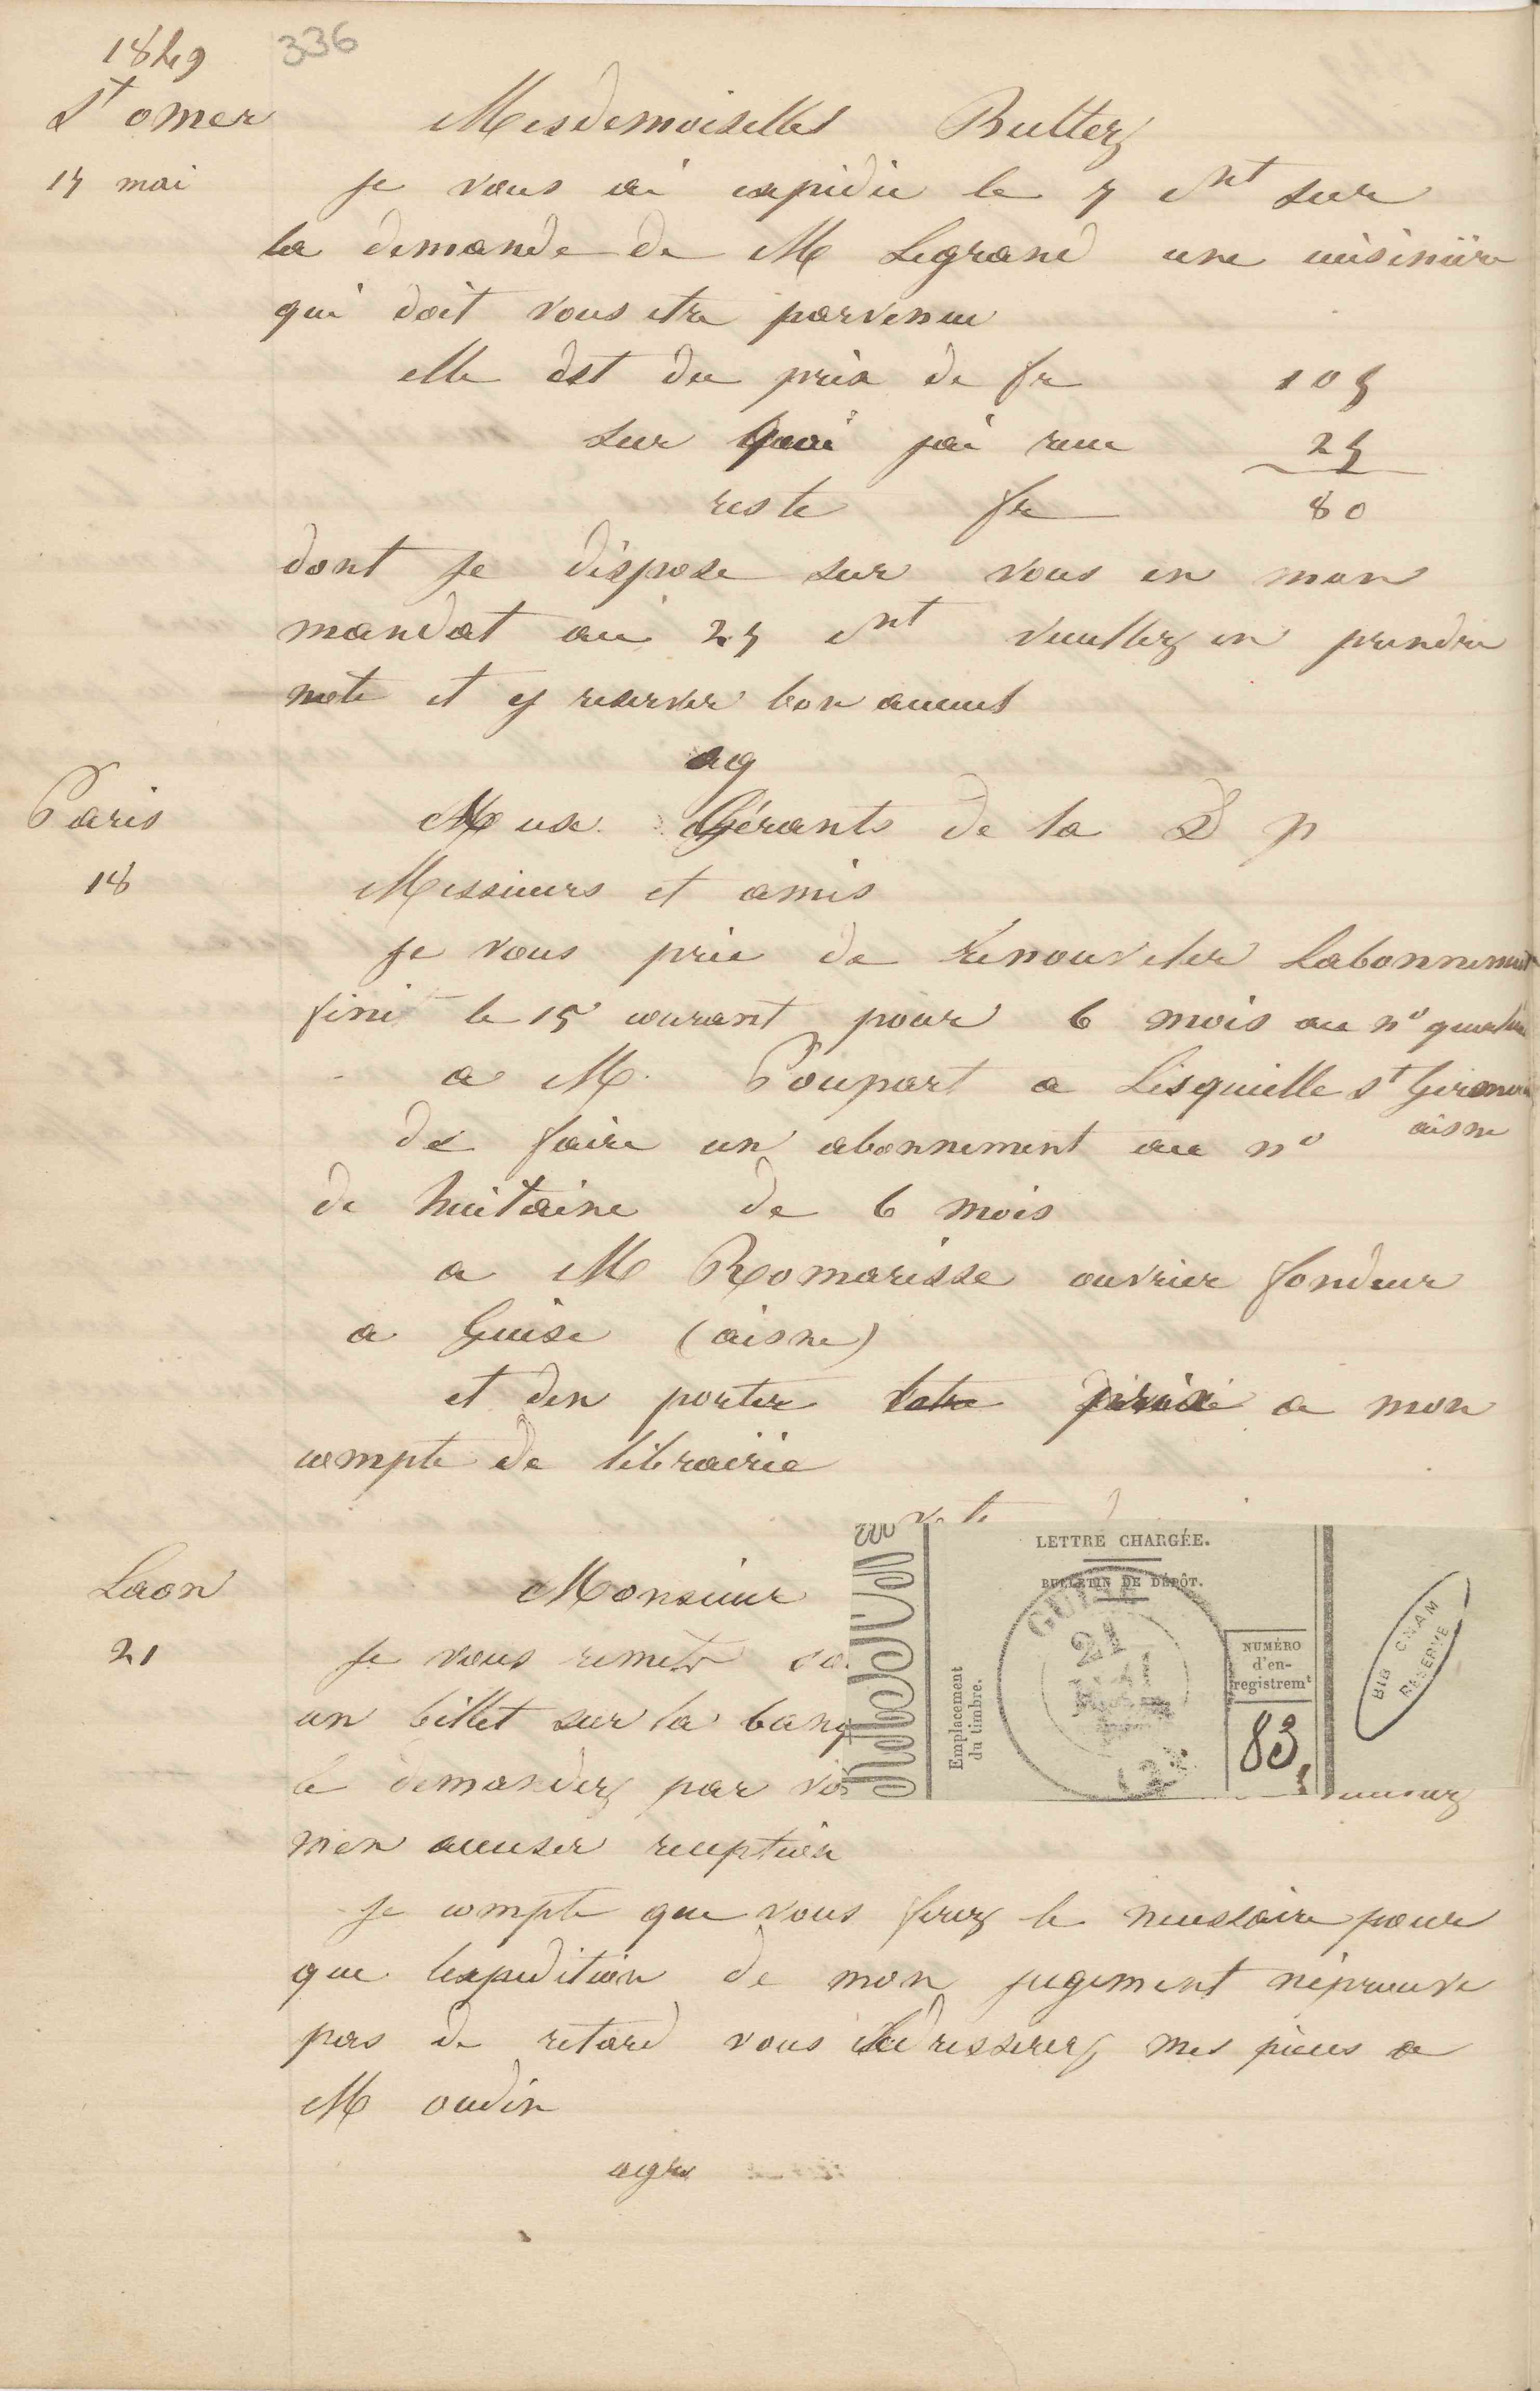 1849 336
St omer Mesdemoiselles Butterz
15 mai je vous ai expidie le 5 ct sur
la demande de M Legrand une cuisiniïre
qui doit vous etre parvenue
elle est du prix de fr 105
sur quoi jai recu 25
reste fr 80
dont je dispose sur vous en mon
mandat au 25 ct veuillez en prendre
note et y reserver bon accueil
ag
Paris Meux Gérants de la D p
18 Messieurs et amis
je vous prie de renouveler labonnement
fini le 15 courant pour 6 mois au no
a M. Poupart a Lesquielle st Germain
aisne
de faire un abonnement au no
de huitaine de 6 mois
a M Romarisse ouvrier fondeur
a Guise (aisne)
et den porter le prix a mon
compte de librairie
LETTRE CHARGÉE.
BULLETIN DE DÉPÔT.
GUISE
21
MAI
Emplacement
du timbre.
NUMÉRO
d'en-
registremt
83
BIB CNAM
RESERVE
Laon Monsieur
21 je vous remets
un billet sur la banq
le demandez par
men accuser reception
je compte que vous ferez le necessaire pour
que lexpedition de mon jugement neprouve
pas de retard vous adresserez mes pieces a
M oudin
agr